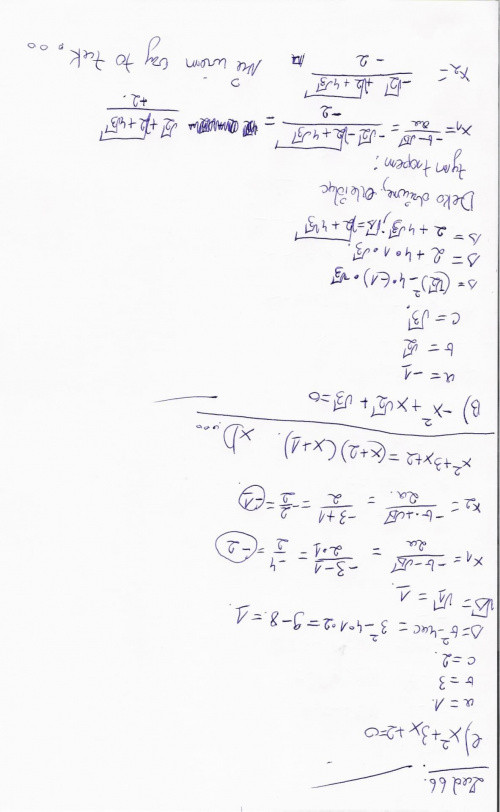 Zad 66.
e) x²+3x+2=0
a = 1.
b = 3
c = 2.
Δ=b²-4ac = 3²-4•1•2=9-8=1.
√Δ = √1 = 1.
x1 = (-b-√Δ)/2a = (-3-1)/(2•1) = -4/2 = -2
x2 = (-b+√Δ)/2a. = (-3+1)/2 = -2/2 = -1
x²+3x+2 = (x+2)(x+1).
B) -x² + x√2 + √3=0
a = -1
b = √2
c = √3.
Δ = (√2)²-4•(-1)•√3
Δ = 2 + 4•1•√3.
Δ = 2 + 4√3; √Δ=√(2+4√3)
tym tropem:
x1= (-b-√Δ)/2a = (-√2-√(2+4√3))/-2 = (√2+√(2+4√3))/+2.
x2= (-√2+√(2+4√3))/-2
Nie wiem czy to tak,oo